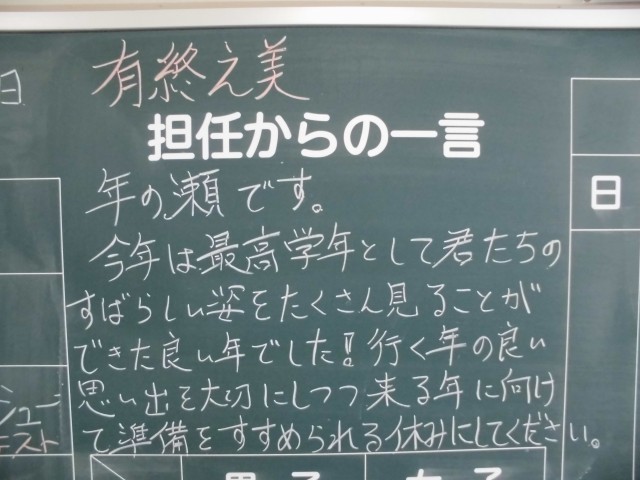 有終え美
担任からの一言
年の瀬です。
今年は最高学年として君たちの
すばらしい姿をたくさん見ることが
できた良い年でした!!行く年の良い
思い出を大切にしつつ来る年に向け
て準備をすすめられる休みにしてください。
日
日
シュー
テスト
男子
女子